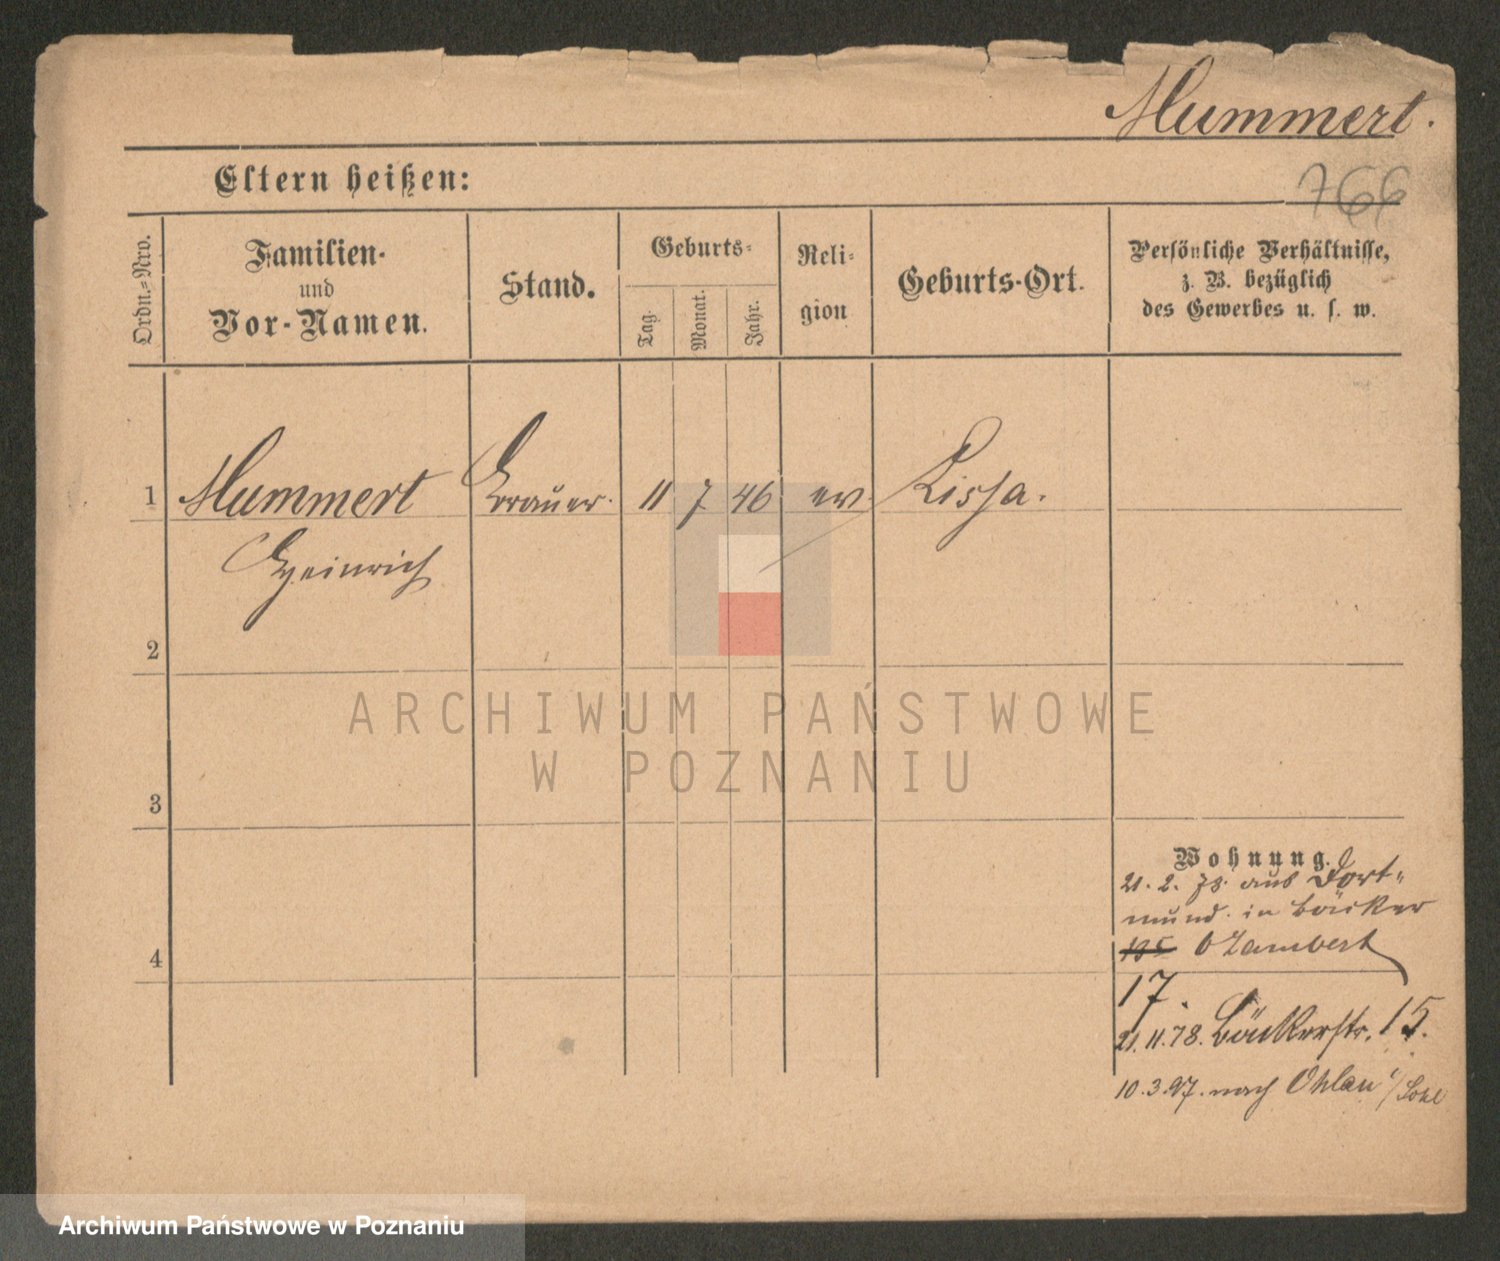 Mummert.
766
Eltern heißen:
Ordn.-Nro.
Familien-
und
Vor-Namen.
Stand.
Geburts-
Tag.
Monat.
Jahr.
Reli-
gion
Geburts-Ort.
Persönliche Verhältnisse,
z. B. bezüglich
des Gewerbes u. s. w.
1 Mummert Brauer. 11 7 46 ev. Lissa.
Heinrich
2
3
4
Wohnung.
21. 2. 78. aus Dort-
mund. in Bäcker
b Lambert
17.
21. 11. 78. Bäckerstr. 15.
10. 3. 97. nach Ohlau
ARCHIWUM PAŃSTWOWE
W POZNANIU
Archiwum Państwowe w Poznaniu